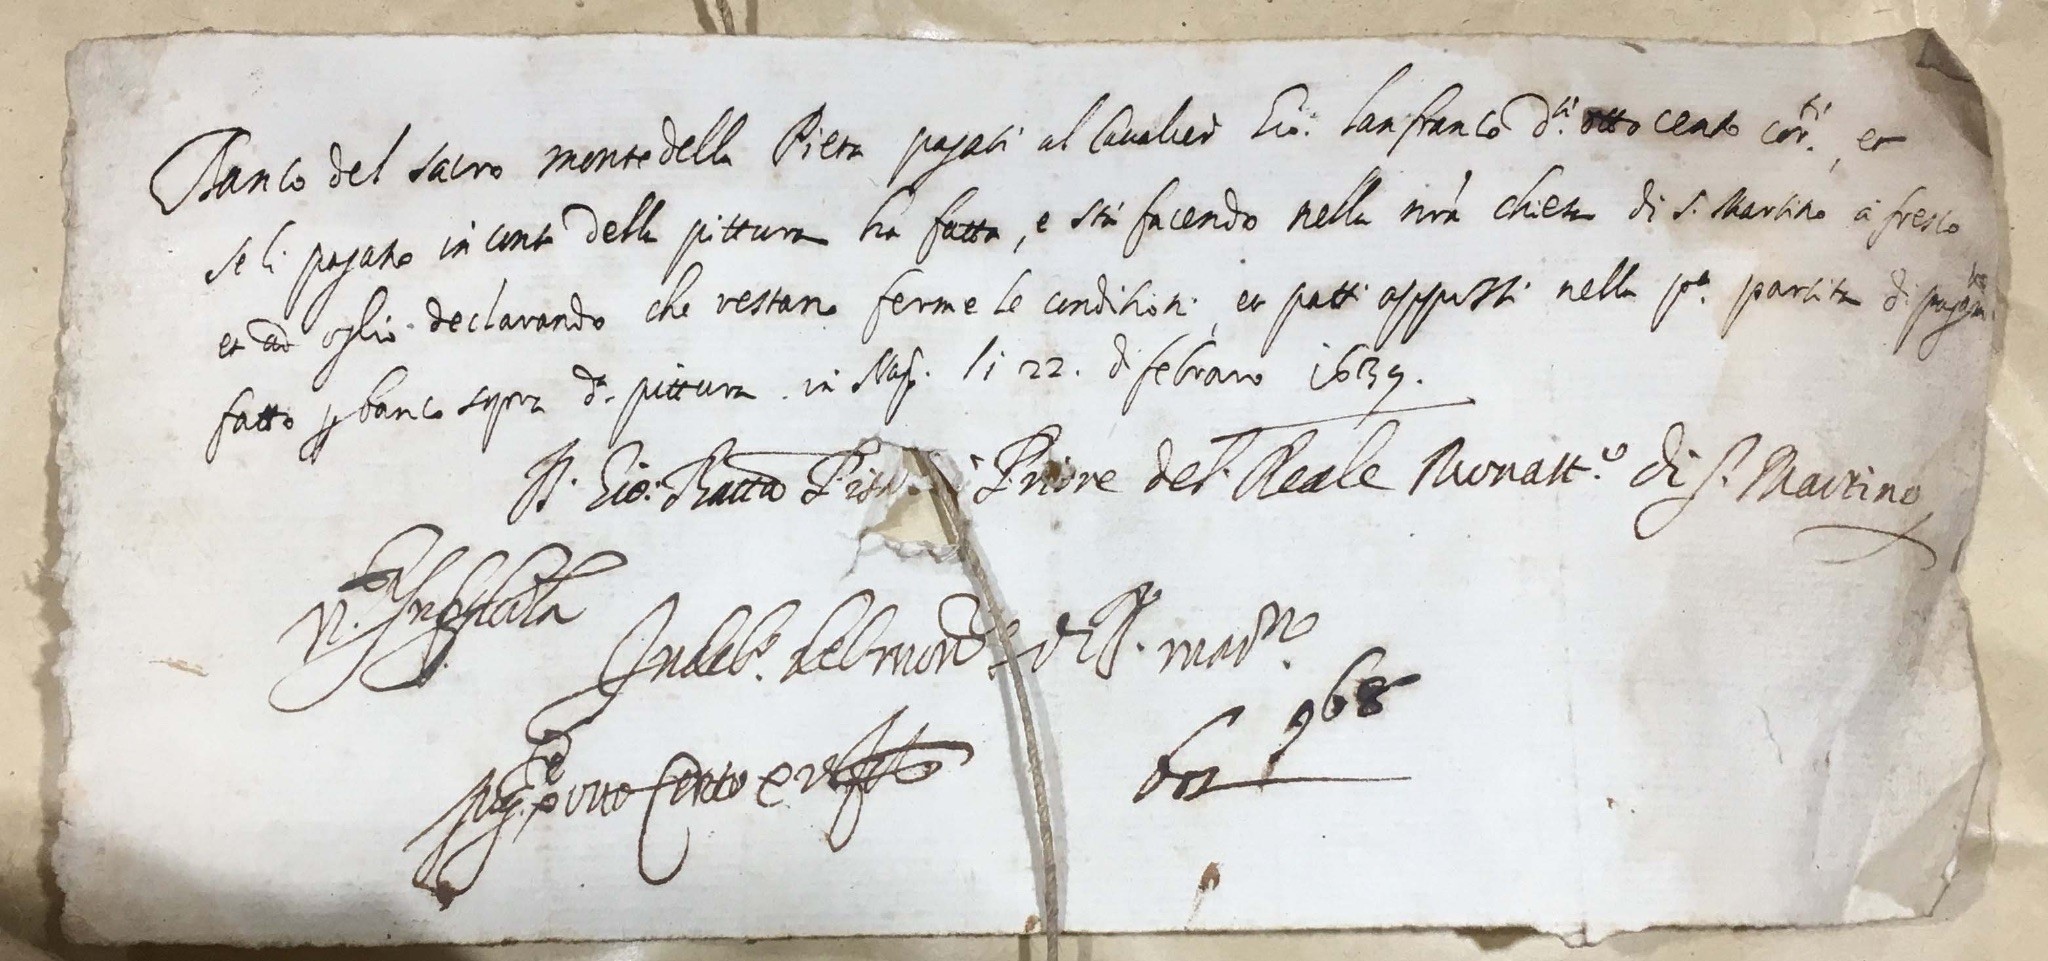 Banco del sacro monte della Pieta pagati al Cavalier Gio. lanfranco d.ti otto cento corr.ti, et
se li pagano in conto della pittura ha fatta, e sta facendo nella nrã chiesa di S. Martino a fresco
et ad oglio declarando che restano ferme le conditioni, et patti apposti nella p.a partita di pagam.to
fatto per banco sopra d.a pittura. in Nap. li 22. di febraro 1639.
Gio: Batta Priore del Reale Monast.o di S. Martino
del mon.o di S. mar.no
968